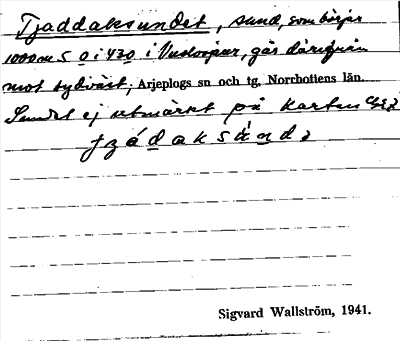 Tjaddaksundet, sund, som börjar
1000 m S o i 430 i Vuolvojaur, går därifrån
mot sydväst, Arjeplogs sn och tg, Norrbottens län.
Sundet ej utmärkt på kartan
Sigvard Wallström, 1941.